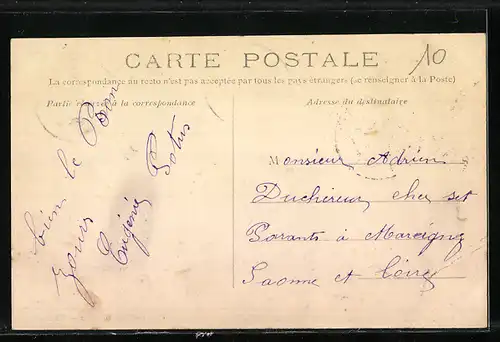 10
CARTE POSTALE
La correspondance au recto n'est pas acceptée par tous les pays étrangers (se renseigner à la Poste)
Partie réservée à la correspondance
Adresse du destinataire
bien le Bon
Jours
Eugénie Potus
Monsieur Adrien
Duchereux cher set
Parants à Marcigny
Saonne et Loire